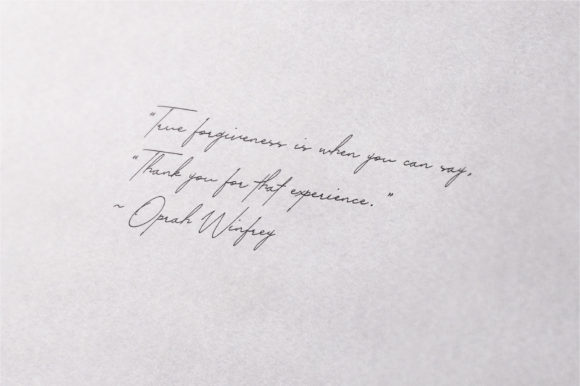 "True forgiveness is when you can say,
"Thank you for that experience."
~ Oprah Winfrey